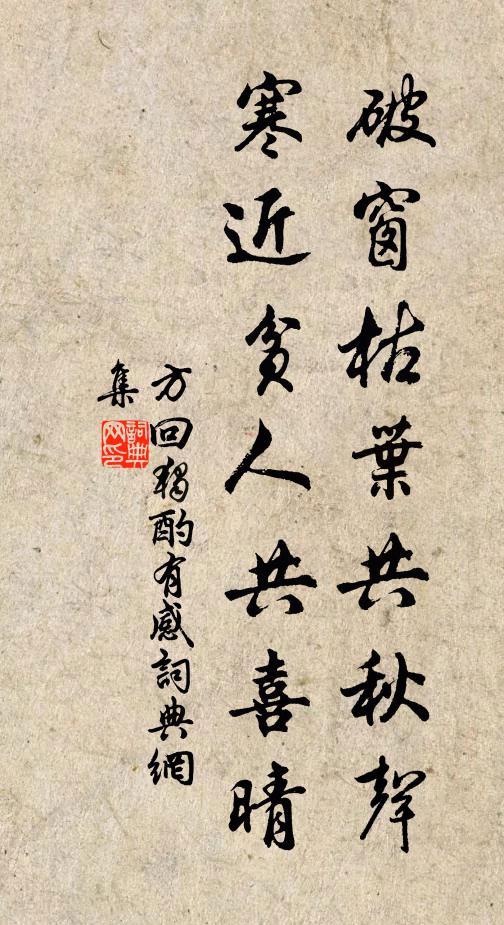 破窗枯葉共秋聲
寒近貧人共喜晴
方回獨酌有感詞典網
集
詞典
网印